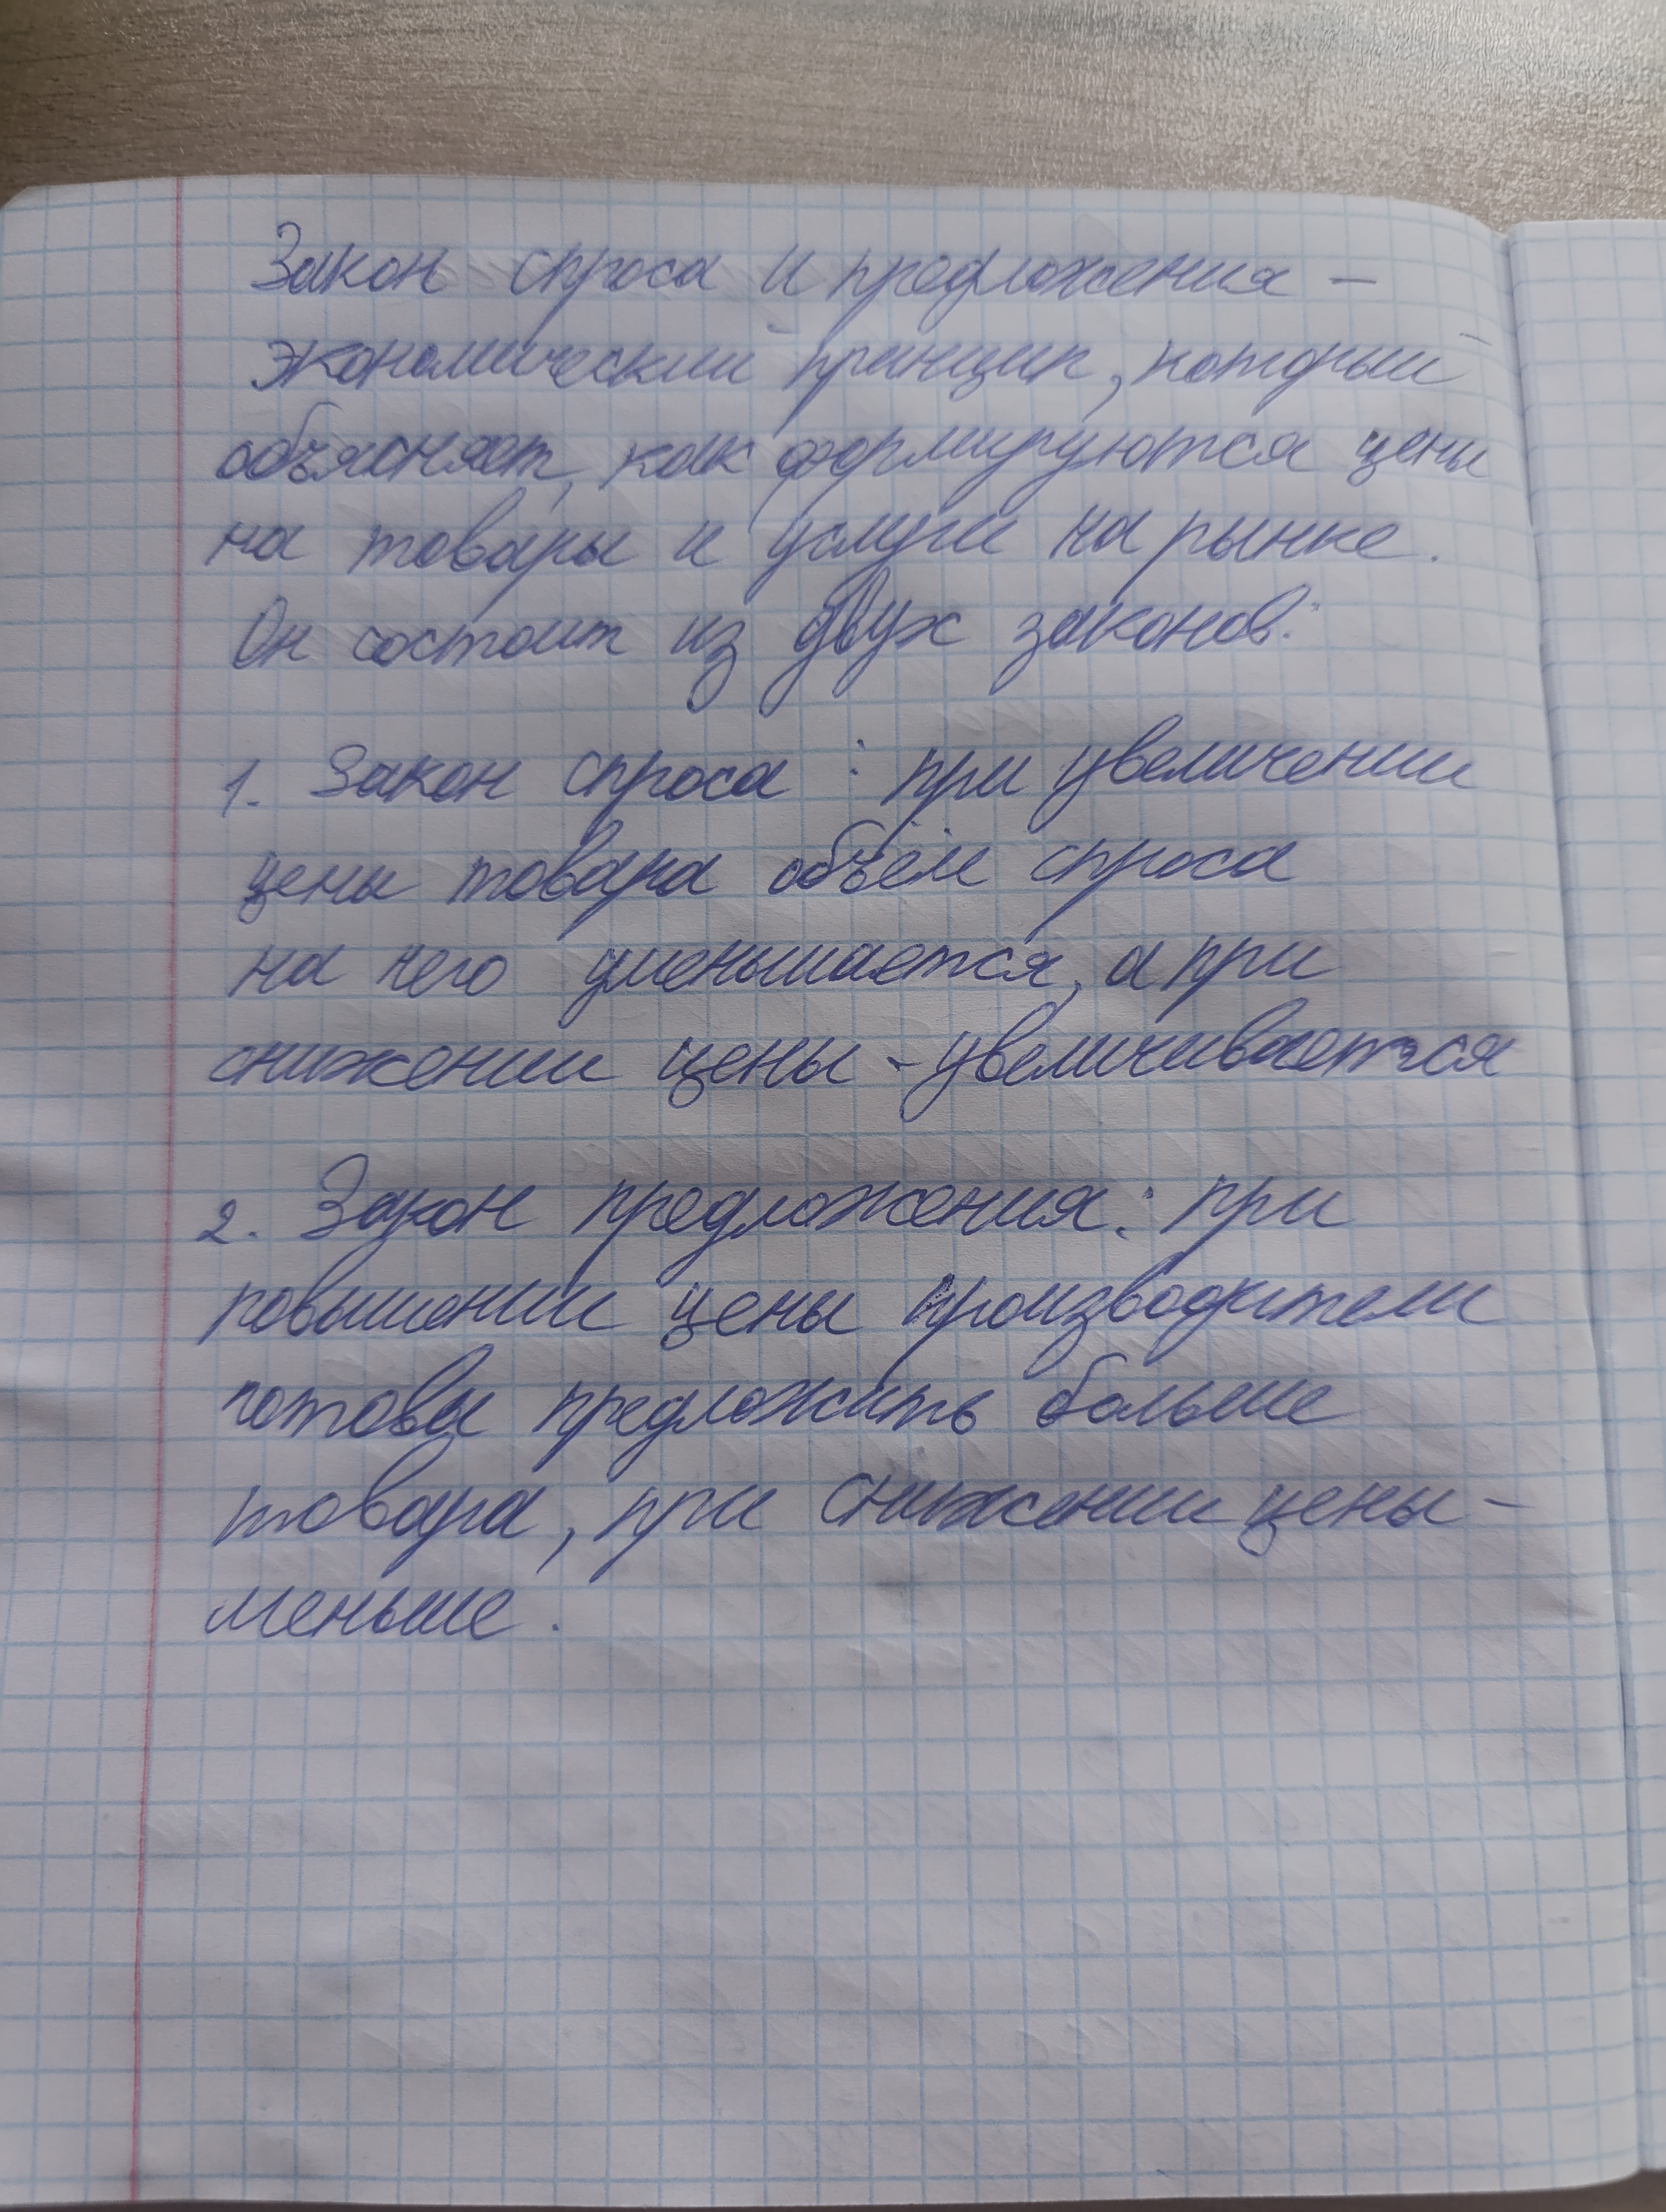 Закон спроса и предложения –
экономический принцип, который
объясняет, как формируются цены
на товары и услуги на рынке.
Он состоит из двух законов:
1. Закон спроса : при увеличении
цены товара объём спроса
на него уменьшается, а при
снижении цены - увеличивается
2. Закон предложения: при
повышении цены производители
готовы предложить больше
товара, при снижении цены -
меньше.